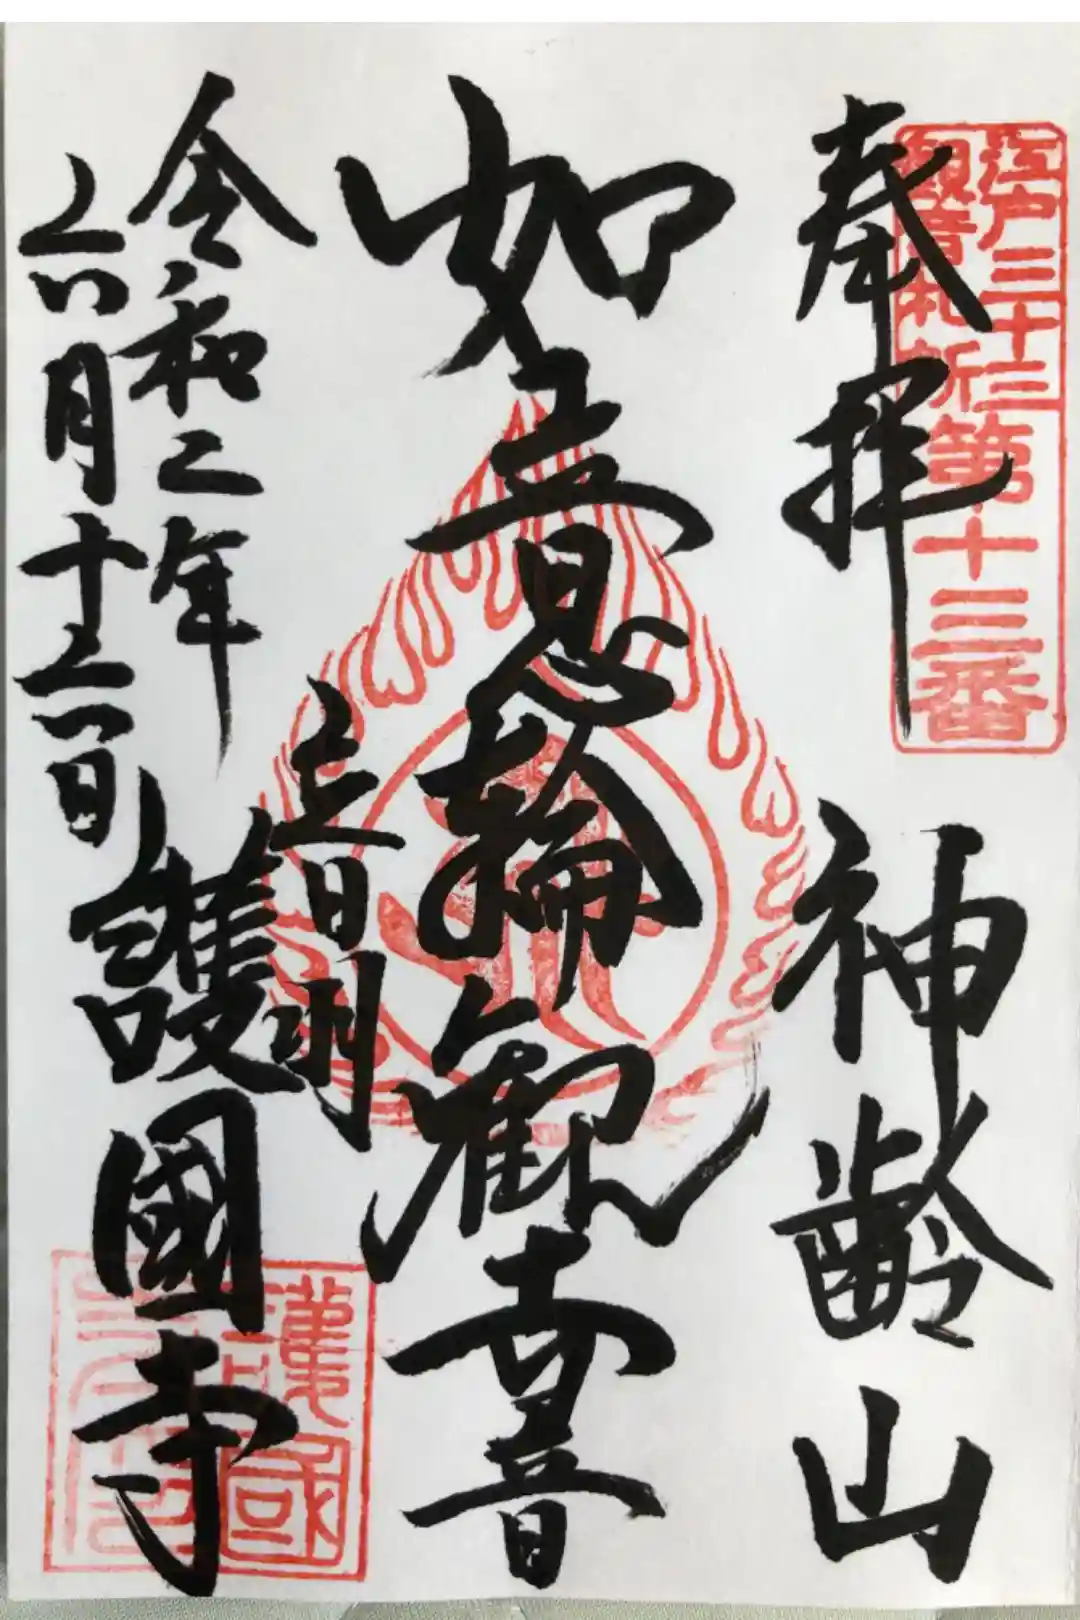 江戸三十三
観音札所
第十三番
奉拝
神齢山
如意輪観世音
音羽
護國寺
令和二年
六月十六日
護國
寺印